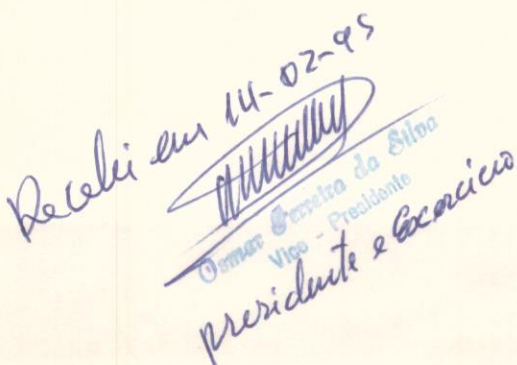 Recebi em 14-02-95
Osmar Ferreira da Silva
Vice - Presidente
presidente e Exercicio